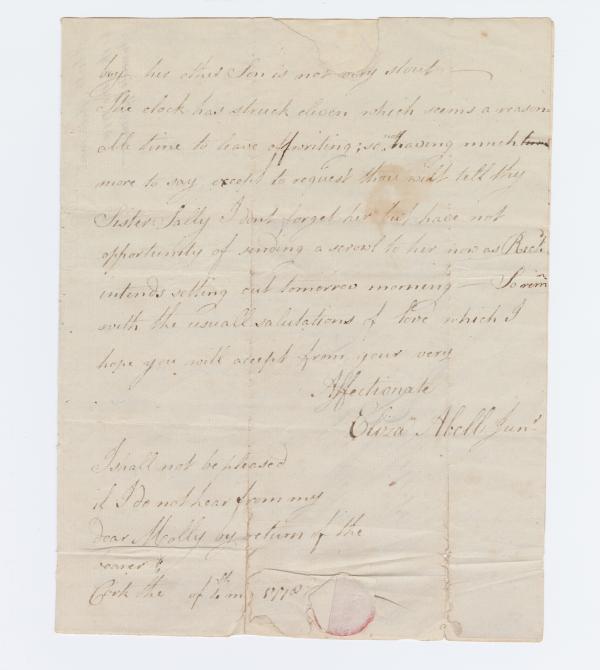 her other Son is not very stout —
The clock has struck eleven which seems a reason
able time to leave off writing; so not having much time
more to say, except to request thou wilt tell thy
Sister Sally I dont forget her but have not
opportunity of sending a scrowl to her now as Rich
intends setting out tomorrow morning — So rem
with the usuall salutations of love which I
hope you will accept from your very
Affectionate
Eliza Abell Junr
I shall not be pleased
if I do not hear from my
dear Molly by return of the
bearer
Cork the of mo 1778